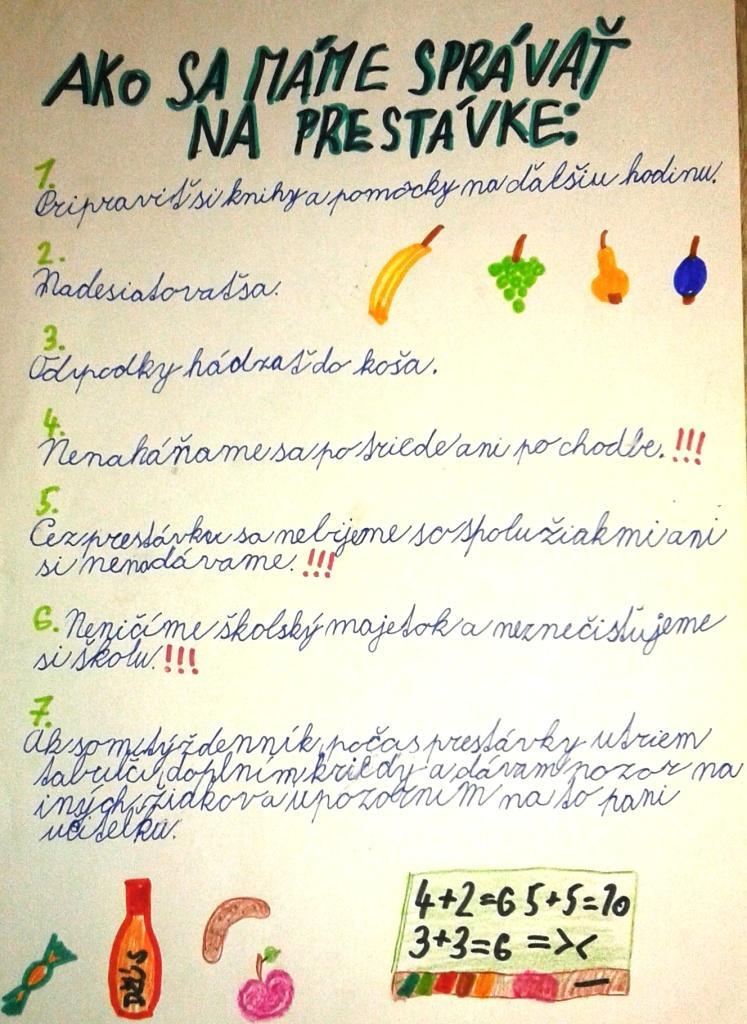 AKO SA MÁME SPRÁVAŤ
NA PRESTÁVKE:
1.
Pripraviť si knihy a pomôcky na ďalšiu hodinu.
2.
Nadesiatovať sa.
3.
Odpadky hádzať do koša.
4.
Nenaháňame sa po triede ani po chodbe. !!!
5.
Cez prestávku sa nebijeme so spolužiakmi ani
si nenadávame. !!!
6. Neničíme školský majetok a neznečisťujeme
si školu. !!!
7.
Ak som týždenník, počas prestávky utriem
tabuľu, doplním kriedy a dávam pozor na
iných žiakov a upozorním na to pani
učiteľku.
4+2=6 5+5=10
3+3=6 =><